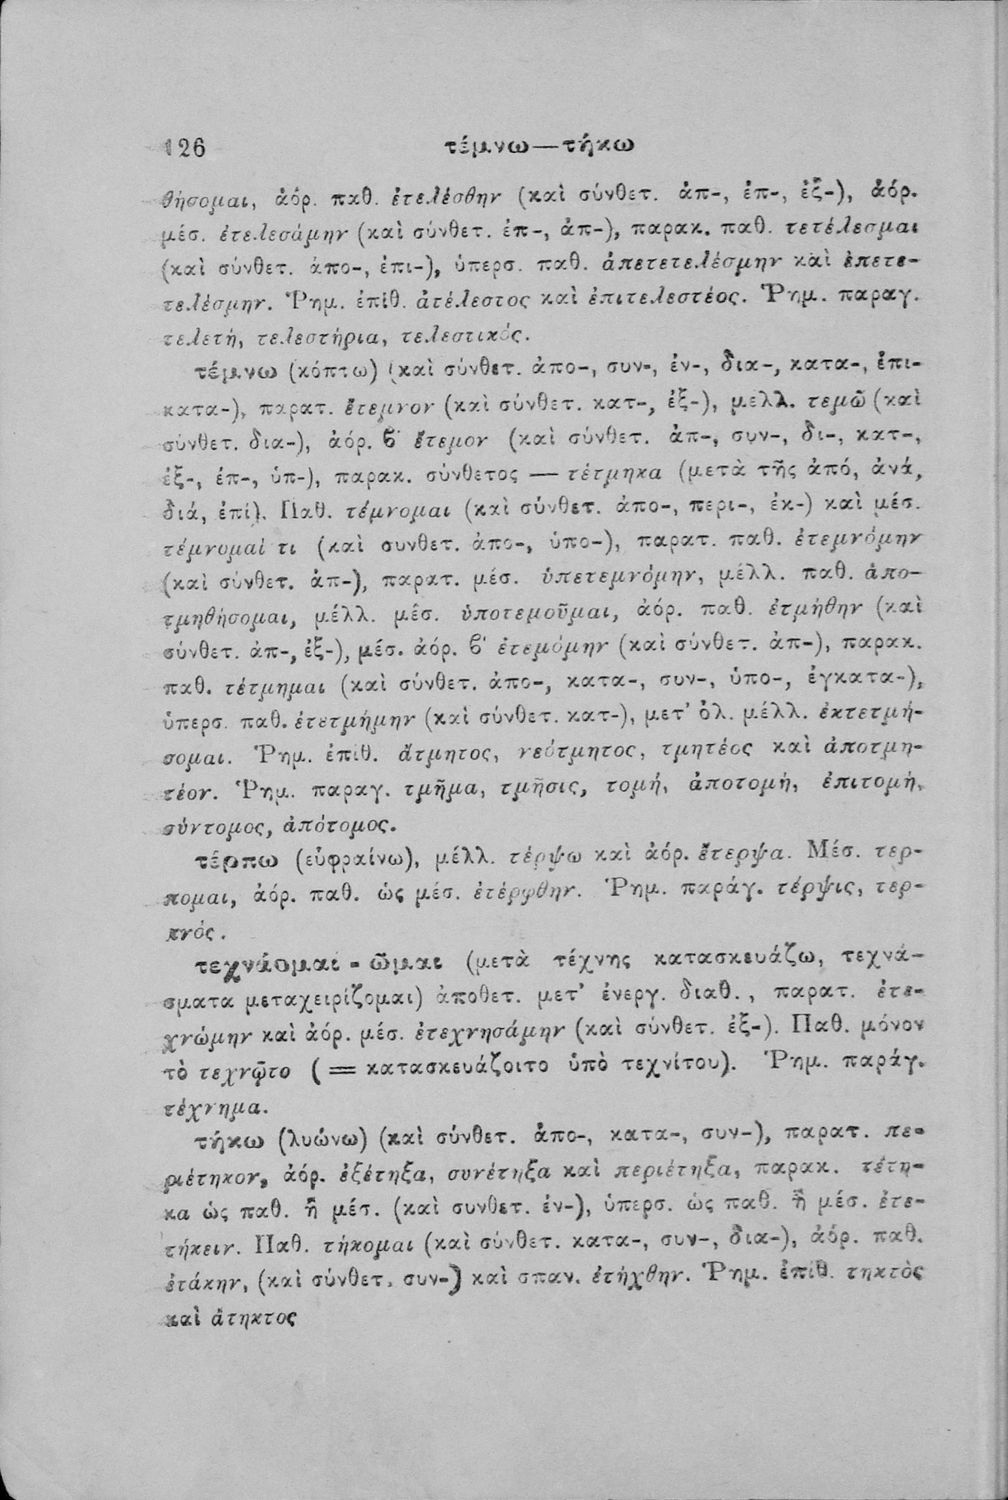 126 τέμνω—τήκω
θήσομαι, ἀόρ. παθ. ἐτελέσθην (καὶ σύνθετ. ἀπ-, ἐπ-, ἐξ-), ἀόρ.
μέσ. ἐτελεσάμην (καὶ σύνθετ. ἐπ-, ἀπ-), παρακ. παθ. τετέλεσμαι
(καὶ σύνθετ. ἀπο-, ἐπι-), ὑπερσ. παθ. ἀπετετελέσμην καὶ ἐπετε-
τελέσμην. Ῥημ. ἐπίθ. ἀτέλεστος καὶ ἐπιτελεστέος. Ῥημ. παραγ.
τελετή, τελεστήρια, τελεστικός.
τέμνω (κόπτω) (καὶ σύνθετ. ἀπο-, συν-, ἐν-, δια-, κατα-, ἐπι-
κατα-), παρατ. ἔτεμνον (καὶ σύνθετ. κατ-, ἐξ-), μελλ. τεμῶ (καὶ
σύνθετ. δια-), ἀόρ. β΄ ἔτεμον (καὶ σύνθετ. ἀπ-, συν-, δι-, κατ-,
ἐξ-, ἐπ-, ὑπ-), παρακ. σύνθετος — τέτμηκα (μετὰ τῆς ἀπό, ἀνά,
διά, ἐπί). Παθ. τέμνομαι (καὶ σύνθετ. ἀπο-, περι-, ἐκ-) καὶ μέσ.
τέμνομαί τι (καὶ συνθετ. ἀπο-, ὑπο-), παρατ. παθ. ἐτεμνόμην
(καὶ σύνθετ. ἀπ-), παρατ. μέσ. ὑπετεμνόμην, μέλλ. παθ. ἀπο-
τμηθήσομαι, μέλλ. μέσ. ὑποτεμοῦμαι, ἀόρ. παθ. ἐτμήθην (καὶ
σύνθετ. ἀπ-, ἐξ-), μέσ. ἀόρ. β΄ ἐτεμόμην (καὶ σύνθετ. ἀπ-), παρακ.
παθ. τέτμημαι (καὶ σύνθετ. ἀπο-, κατα-, συν-, ὑπο-, ἐγκατα-),
ὑπερσ. παθ. ἐτετμήμην (καὶ σύνθετ. κατ-), μετ' ὀλ. μέλλ. ἐκτετμή-
σομαι. Ῥημ. ἐπίθ. ἄτμητος, νεότμητος, τμητέος καὶ ἀποτμη-
τέον. Ῥημ. παραγ. τμῆμα, τμῆσις, τομή, ἀποτομή, ἐπιτομή,
σύντομος, ἀπότομος.
τέρπω (εὐφραίνω), μέλλ. τέρψω καὶ ἀόρ. ἔτερψα. Μέσ. τερ-
πομαι, ἀόρ. παθ. ὡς μέσ. ἐτέρφθην. Ῥημ. παράγ. τέρψις, τερ-
πνός.
τεχνάομαι - ῶμαι (μετὰ τέχνης κατασκευάζω, τεχνά-
σματα μεταχειρίζομαι) ἀποθετ. μετ' ἐνεργ. διαθ., παρατ. ἐτε-
χνώμην καὶ ἀόρ. μέσ. ἐτεχνησάμην (καὶ σύνθετ. ἐξ-). Παθ. μόνον
τὸ τεχνῷτο (= κατασκευάζοιτο ὑπὸ τεχνίτου). Ῥημ. παράγ.
τέχνημα.
τήκω (λυώνω) (καὶ σύνθετ. ἀπο-, κατα-, συν-), παρατ. πε-
ριέτηκον, ἀόρ. ἐξέτηξα, συνέτηξα καὶ περιέτηξα, παρακ. τέτη-
κα ὡς παθ. ἢ μέσ. (καὶ συνθετ. ἐν-), ὑπερσ. ὡς παθ. ἢ μέσ. ἐτε-
τήκειν. Παθ. τήκομαι (καὶ σύνθετ. κατα-, συν-, δια-), ἀόρ. παθ.
ἐτάκην, (καὶ σύνθετ. συν-) καὶ σπαν. ἐτήχθην. Ῥημ. ἐπίθ. τηκτὸς
καὶ ἄτηκτος